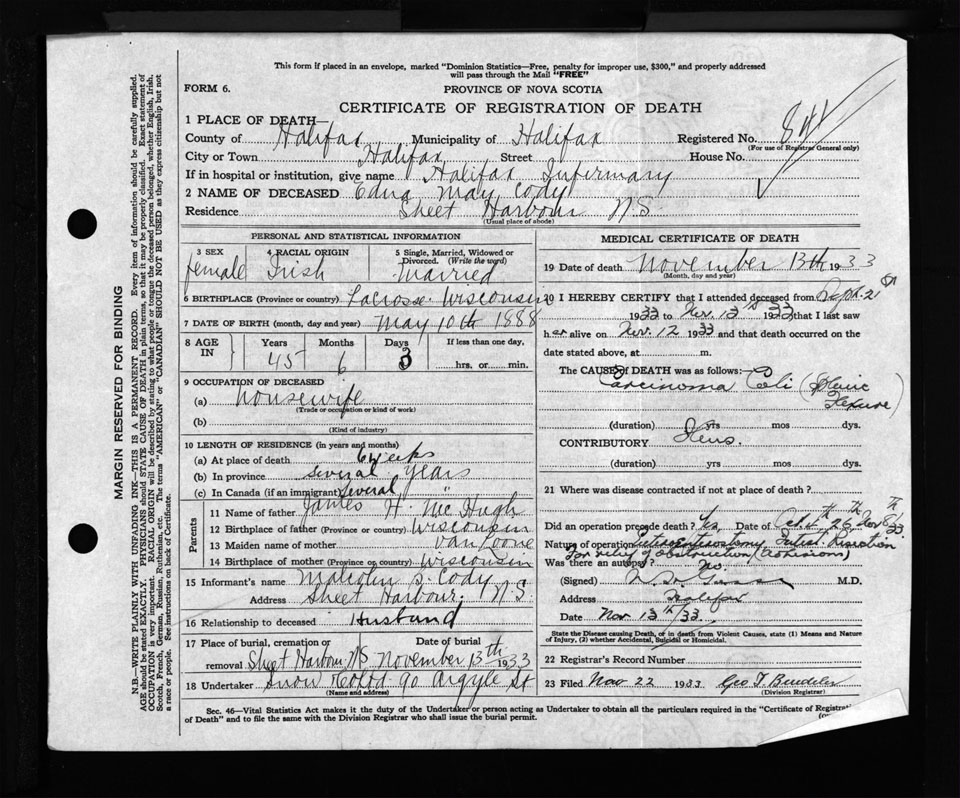 This form if placed in an envelope, marked "Dominion Statistics—Free, penalty for improper use, $300," and properly addressed
will pass through the Mail "FREE"
FORM 6.
PROVINCE OF NOVA SCOTIA
CERTIFICATE OF REGISTRATION OF DEATH
1 PLACE OF DEATH—
County of Halifax Municipality of Halifax Registered No.
(For use of Registrar General only)
City or Town Halifax Street House No.
If in hospital or institution, give name Halifax Infirmary
2 NAME OF DECEASED Edna May Cody
Residence Sheet Harbour N.S.
(Usual place of abode)
PERSONAL AND STATISTICAL INFORMATION
3 SEX female
4 RACIAL ORIGIN Irish
5 Single, Married, Widowed or Divorced. (Write the word) Married
6 BIRTHPLACE (Province or country) Lacrosse. Wisconsin
7 DATE OF BIRTH (month, day and year) May 10th 1888
8 AGE IN Years 45 Months 6 Days 3 If less than one day, hrs. or min.
9 OCCUPATION OF DECEASED
(a) housewife
(Trade or occupation or kind of work)
(b)
(Kind of industry)
10 LENGTH OF RESIDENCE (in years and months)
(a) At place of death 6 weeks
(b) In province several years
(c) In Canada (if an immigrant) several "
Parents
11 Name of father James H. Mc Hugh
12 Birthplace of father (Province or country) Wisconsin
13 Maiden name of mother Van Loone
14 Birthplace of mother (Province or country) Wisconsin
15 Informant's name Malcolm S. Cody
Address Sheet Harbour, N.S.
16 Relationship to deceased Husband
17 Place of burial, cremation or removal Sheet Harbour NS
Date of burial November 13th 1933
18 Undertaker Snow & Co Ltd 90 Argyle St
(Name and address)
MEDICAL CERTIFICATE OF DEATH
19 Date of death November 13th 1933
(Month, day and year)
20 I HEREBY CERTIFY that I attended deceased from Sept. 21
1933 to Nov. 13th 1933 that I last saw
her alive on Nov. 12 1933 and that death occurred on the
date stated above, at m.
The CAUSE of DEATH was as follows:
Carcinoma Coli (Splenic Flexure)
(duration) yrs mos dys.
CONTRIBUTORY Ileus.
(duration) yrs mos dys.
21 Where was disease contracted if not at place of death?
Did an operation precede death? Yes, Date of Oct. 4th 26th Nov 8th/33
Nature of operation
For relief of obstruction (adhesions)
Was there an autopsy? No.
(Signed) M.D.
Address Halifax
Date Nov 13th/33
State the Disease causing Death, or in death from Violent Causes, state (1) Means and Nature
of Injury, (2) whether Accidental, Suicidal or Homicidal.
22 Registrar's Record Number
23 Filed Nov 22 1933 Geo T
(Division Registrar)
Sec. 46—Vital Statistics Act makes it the duty of the Undertaker or person acting as Undertaker to obtain all the particulars required in the "Certificate of Registration
of Death" and to file the same with the Division Registrar who shall issue the burial permit.
MARGIN RESERVED FOR BINDING
N.B.—WRITE PLAINLY WITH UNFADING INK—THIS IS A PERMANENT RECORD. Every item of information should be carefully supplied.
AGE should be stated EXACTLY. PHYSICIANS should STATE CAUSE OF DEATH in plain terms, so that it may be properly classified. Exact statement of
OCCUPATION is very important. RACIAL ORIGIN will be described by stating to what people or tongue the deceased person belonged, whether English, Irish,
Scotch, French, German, Russian, Ruthenian, etc. The terms "AMERICAN" or "CANADIAN" SHOULD NOT BE USED as they express citizenship but not
a race or people. See instructions on back of Certificate.